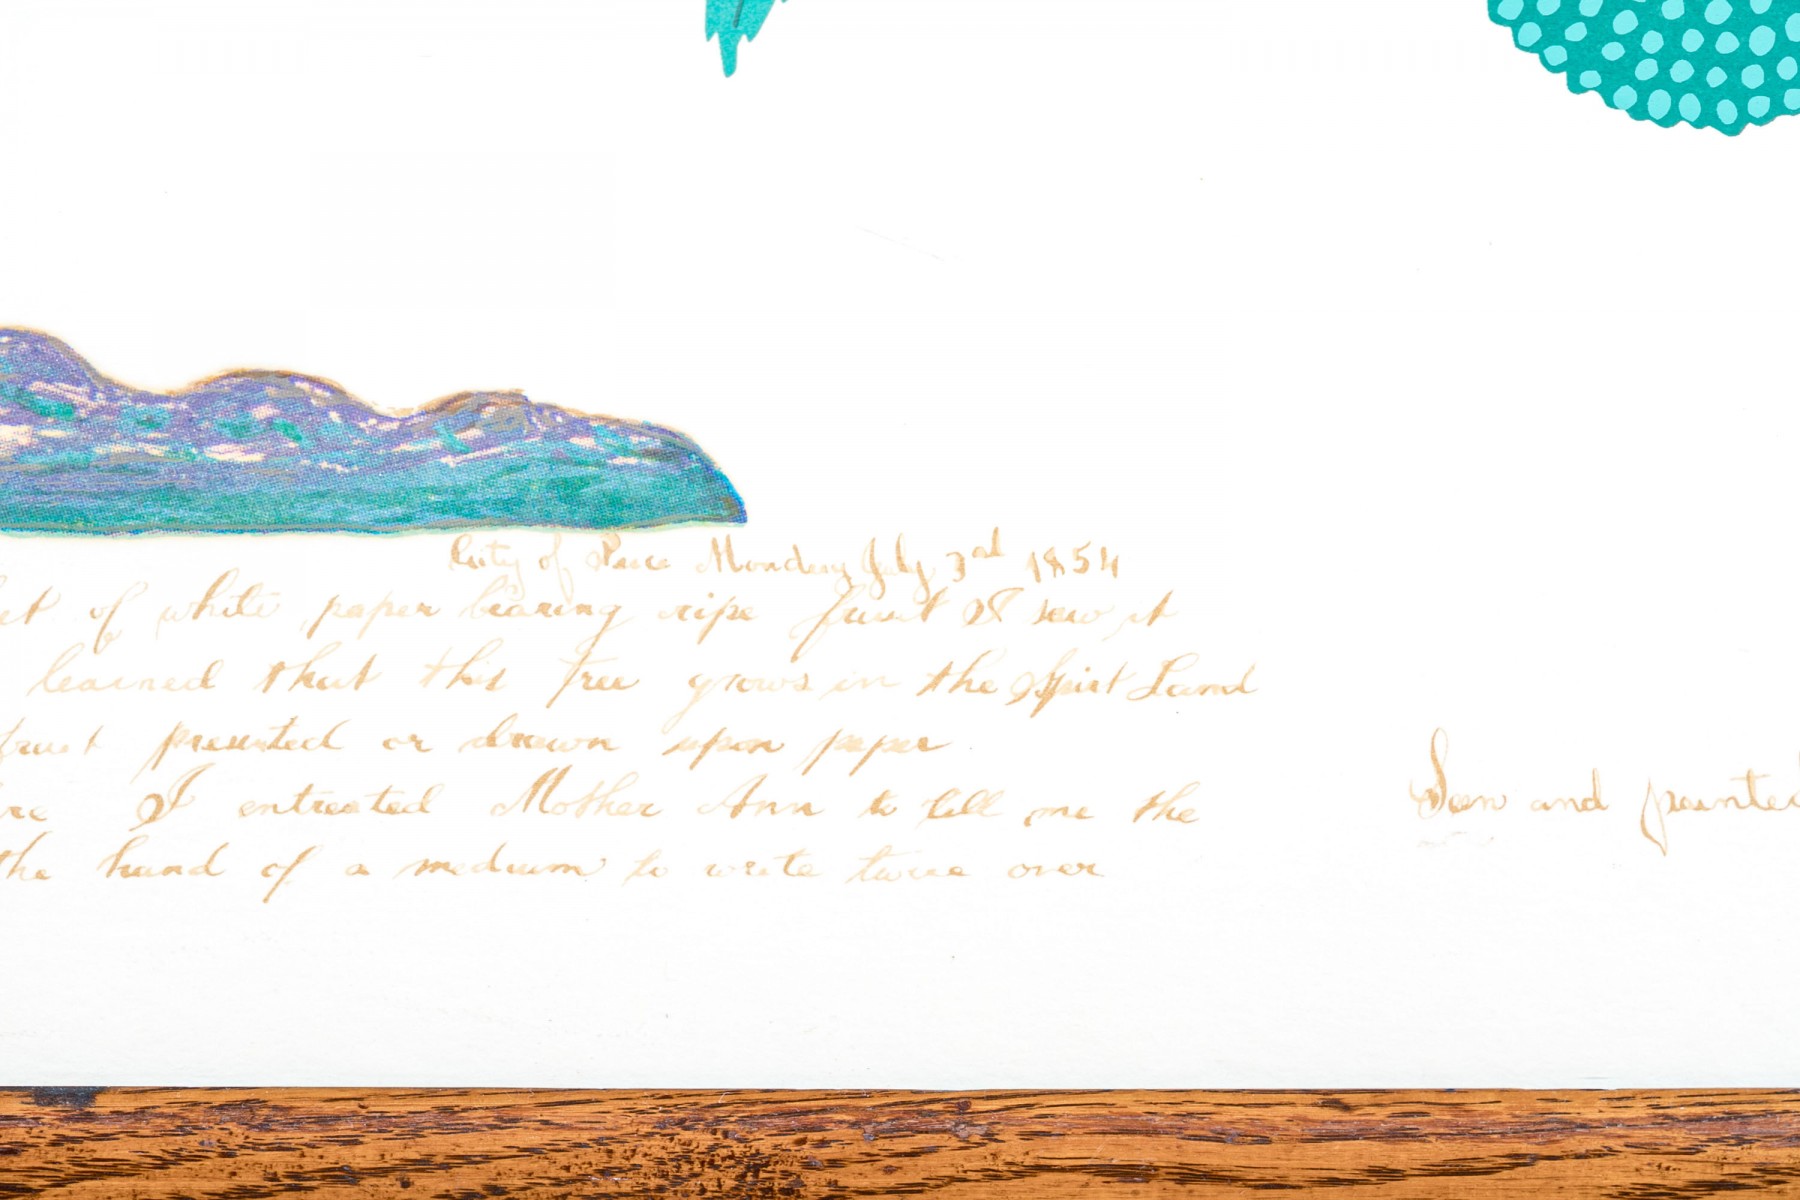 City of Peace Monday July 3rd 1854
et of white paper bearing ripe fruit I saw it
learned that this Tree grows in the Spirit Land
fruit presented or drawn upon paper
re I entreated Mother Ann to tell me the
the hand of a medium to write twice over
Seen and painted